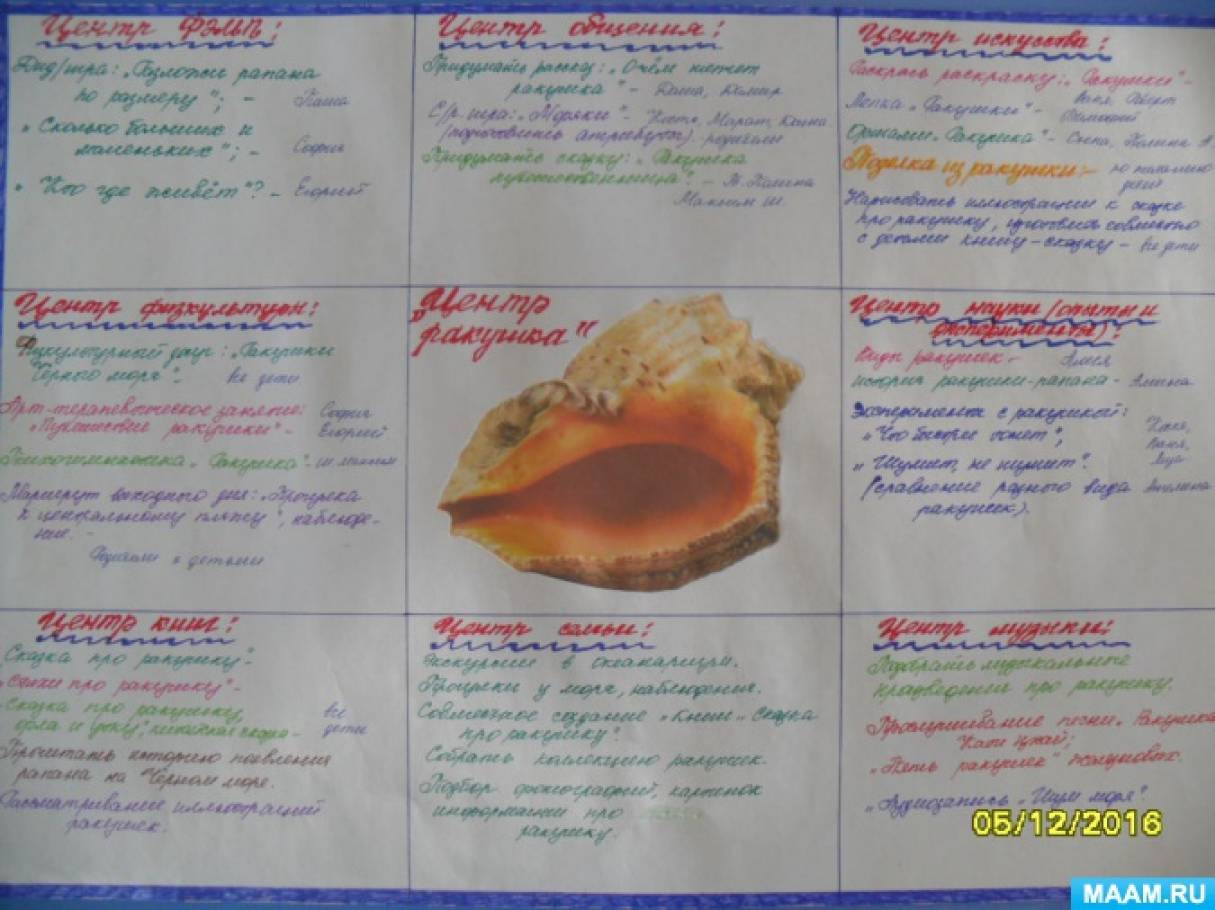 Центр ФЭМП:
Дид/игра: „Разложи рапана
по размеру"; - Паша
„Сколько больших и
маленьких"; - София
„Кто где живёт"? - Егорий
Центр общения:
Придумать рассказ: „О чём шепчет
ракушка" - Паша,
С/р. игра: „Моряки" - Костя, Марат,
(подготовить атрибуты). родители
Придумать сказку: „Ракушка
путешественница". - Полина
Максим Ш.
Центр искусства:
Раскрась раскраску: „Ракушки" -
Лепка „Ракушки" - Ваня,
Оригами „Ракушка" -
Поделка из ракушки: - по желанию
детей
Нарисовать иллюстрации к сказке
про ракушку, совместно
с детьми книгу-сказку - все дети
Центр физкультуры:
Физкультурный досуг: „Ракушки
Чёрного моря". все дети
Арт-терапевтическое занятие: София
„Путешествие ракушки" - Егорий
Психогимнастика „Ракушка" - Ш. Максим
Маршрут выходного дня: „Прогулка
к центральному пляжу", наблюде-
ние. -
Родители с детьми
„Центр
ракушка"
Центр науки (опыты и
эксперименты):
Виды ракушек - Алися
история ракушки-рапана - Алина
Эксперименты с ракушкой:
„Что быстрее тонет"; Костя,
„Шумит, не шумит". Ваня,
(сравнение разного вида Ангелина
ракушек).
Центр книг:
Сказка про ракушку" -
„Стихи про ракушку" -
Сказка про ракушку, все
орла и луну; китайская сказка - дети
Прочитать историю появления
рапана на Чёрном море.
Рассматривание иллюстраций
ракушек.
Центр семьи:
Экскурсии в океанариум.
Прогулки у моря, наблюдения.
Совместное создание „Книги „Сказка
про ракушку".
Собрать коллекцию ракушек.
Подбор фотографий, картинок
информации про
ракушку.
Центр музыки:
Подобрать музыкальные
произведении про ракушку.
Прослушивание песни „Ракушка
Кати
„Пять ракушек"
„Аудиозапись „Шум моря".
05/12/2016
MAAM.RU